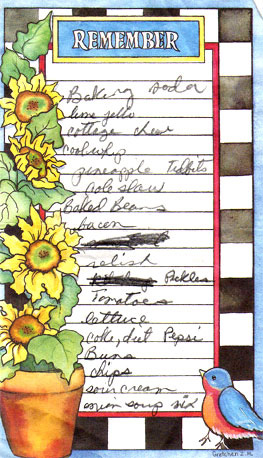 REMEMBER
Baking soda
lime jello
cottage chese
cool whip
pineapple Tidbits
cole slaw
Baked Beans
bacon
relish
Pickles
Tomatoes
lettuce
coke, diet Pepsi
Buns
chips
sour cream
onion soup six
Gretchen